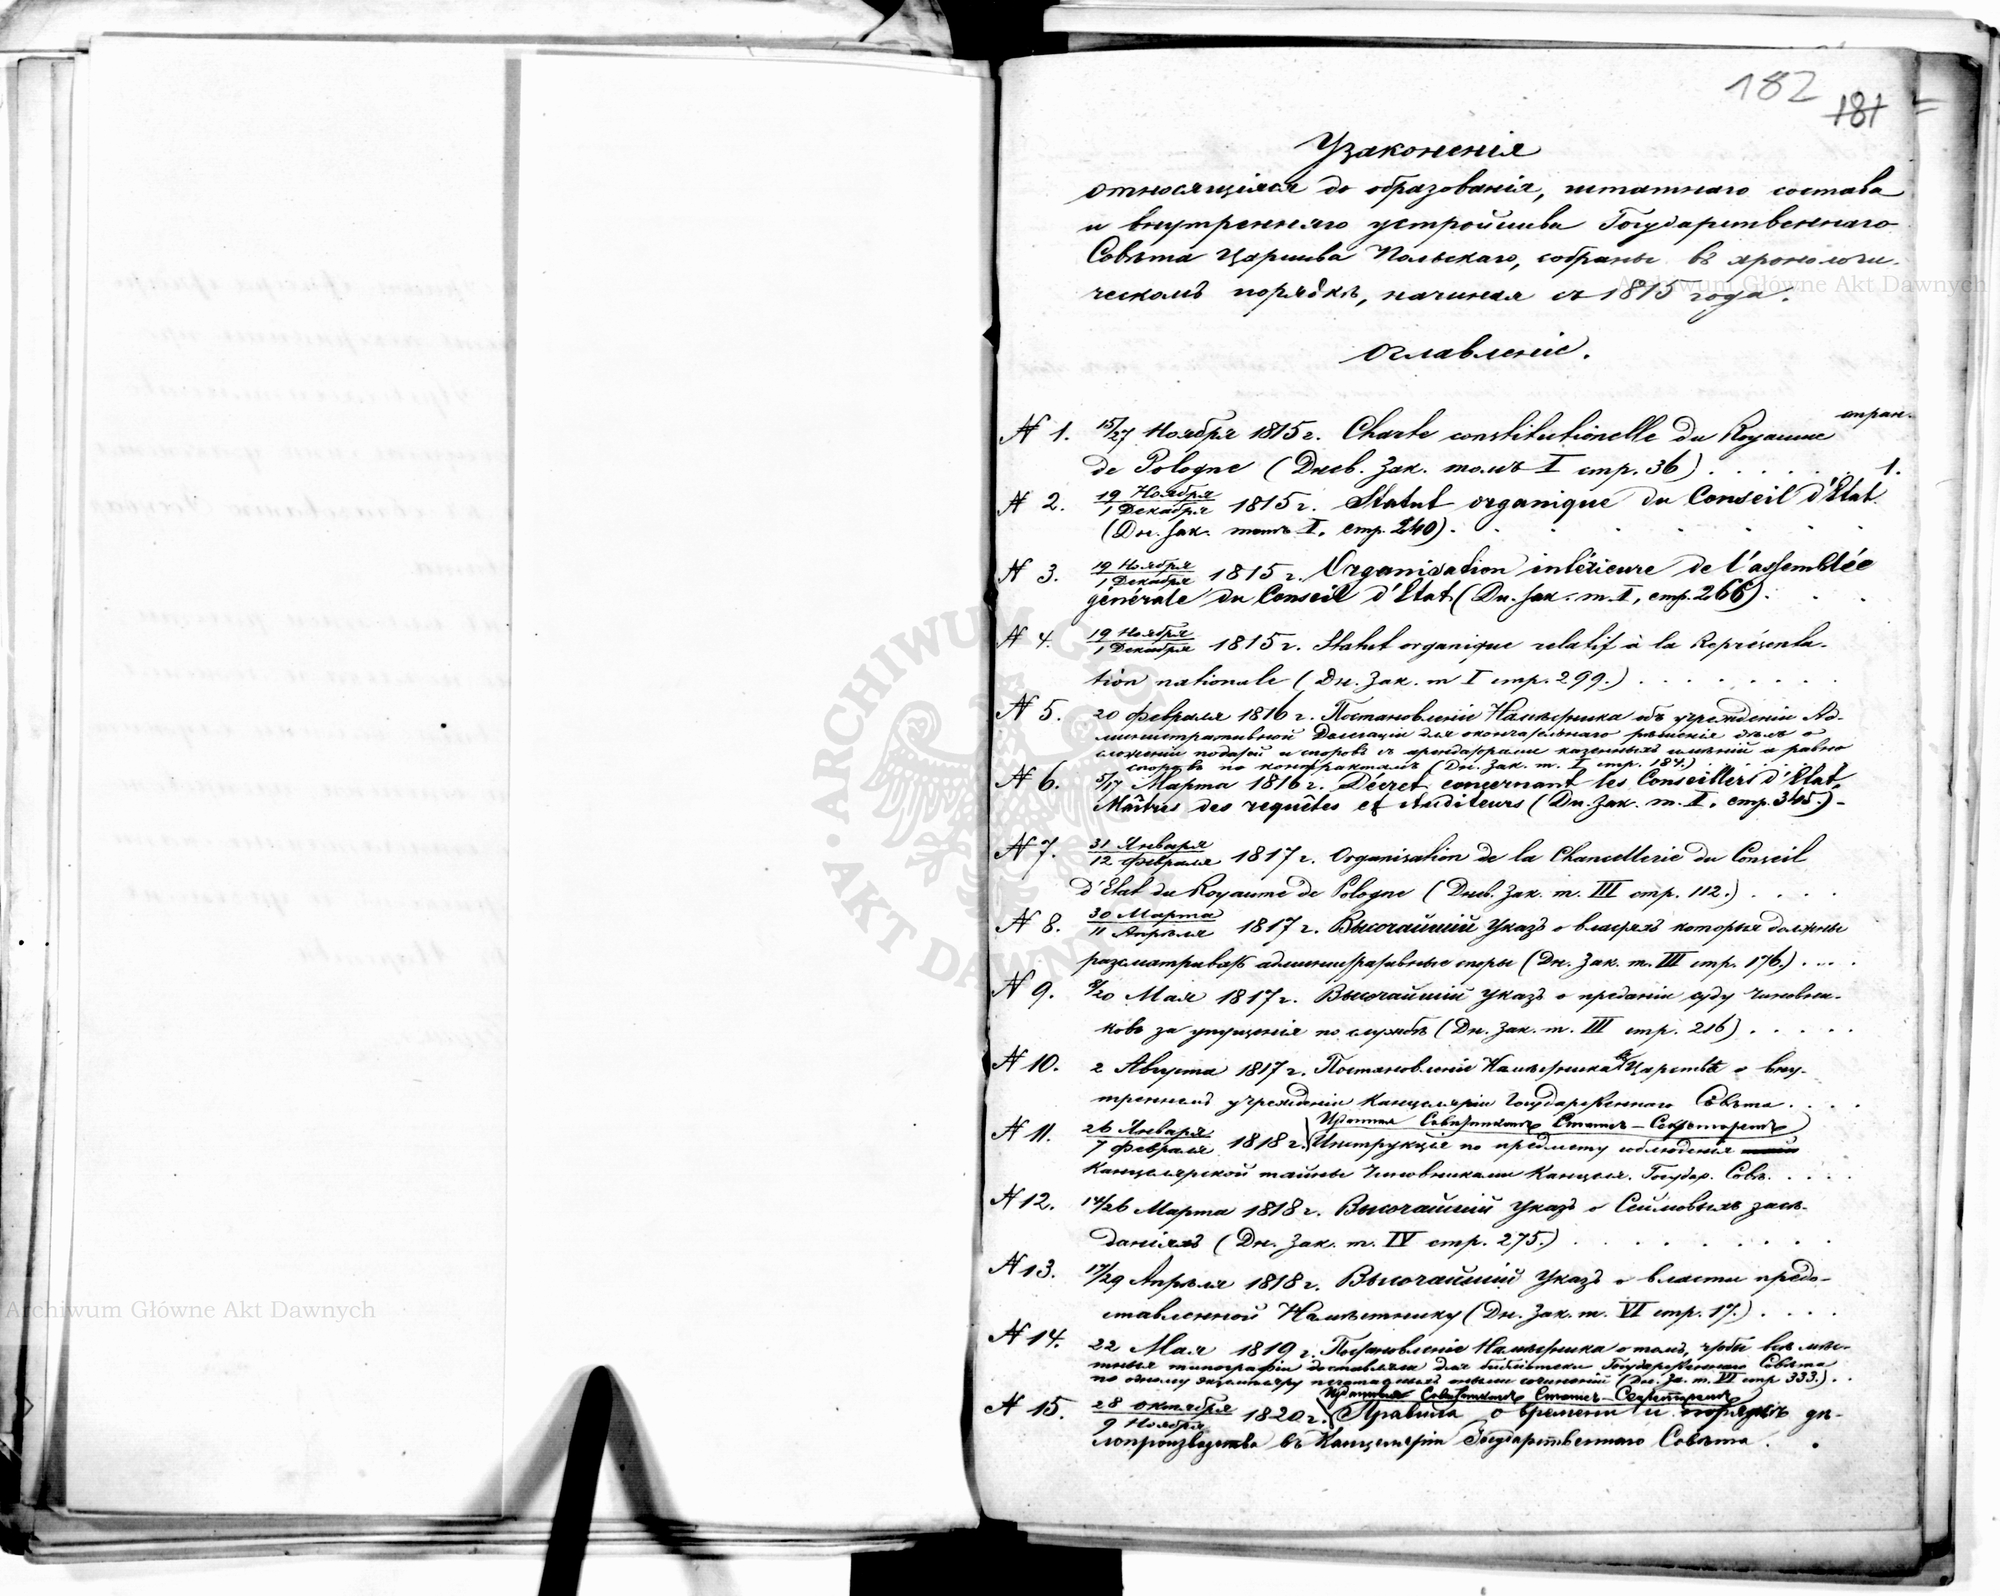 182
181
Узаконенія
относящіяся до образованія, штатнаго состава
и внутренняго устройства Государственнаго
Совѣта Царства Польскаго, собраны въ хронологи-
ческомъ порядкѣ, начиная съ 1815 года.
Оглавленіе.
стран.
№ 1. 15/27 Ноября 1815 г. Charte constitutionelle du Royaume
de Pologne (Днев. Зак. томъ I стр. 36) . . . . . 1.
№ 2. 19 Ноября / 1 Декабря 1815 г. Statut organique du Conseil d'Etat
(Дн. Зак. томъ I, стр. 240) . . . . . .
№ 3. 19 Ноября / 1 Декабря 1815 г. Organisation intérieure de l'assemblée
générale du Conseil d'Etat (Дн. Зак. т. I, стр. 266) . . .
№ 4. 19 Ноября / 1 Декабря 1815 г. Statut organique relatif à la Représenta-
tion nationale (Дн. Зак. т I стр. 299.) . . . . . . .
№ 5. 20 Февраля 1816 г. Постановленіе Намѣстника объ учрежденіи Ад-
министративной Делегаціи для окончательнаго рѣшенія дѣлъ о
сложеніи податей и споровъ съ арендаторами казенныхъ имѣній а равно
споровъ по контрактамъ (Дн. Зак. т. I стр. 184.) . . . .
№ 6. 5/17 Марта 1816 г. Décret concernant les Conseillers d'Etat,
Maîtres des requêtes et Auditeurs (Дн. Зак. т. I, стр. 345.) -
№ 7. 31 Января / 12 Февраля 1817 г. Organisation de la Chancellerie du Conseil
d'Etat du Royaume de Pologne (Днев. Зак. т. III стр. 112.) . . . .
№ 8. 30 Марта / 11 Апрѣля 1817 г. Высочайшій Указъ о властяхъ которыя должны
разсматривать административные споры (Дн. Зак. т. III стр. 176.) . . . .
№ 9. 8/20 Мая 1817 г. Высочайшій Указъ о преданіи суду чиновни-
ковъ за упущенія по службѣ (Дн. Зак. т. III стр. 216) . . . . .
№ 10. 2 Августа 1817 г. Постановленіе Намѣстника въ Царствѣ о вну-
треннемъ учрежденіи Канцеляріи Государственнаго Совѣта . . . .
Изданная Совѣтникомъ Статсъ-Секретаремъ
№ 11. 26 Января / 7 Февраля 1818 г. Инструкція по предмету соблюденія
Канцелярской тайны Чиновниками Канцеля. Государ. Совѣ. . . . .
№ 12. 14/26 Марта 1818 г. Высочайшій Указъ о Сеймовыхъ засѣ-
даніяхъ (Дн. Зак. т. IV стр. 275.) . . . . . . .
№ 13. 17/29 Апрѣля 1818 г. Высочайшій Указъ о власти предо-
ставленной Намѣстнику (Дн. Зак. т. VI стр. 17.) . . . .
№ 14. 22 Мая 1819 г. Постановленіе Намѣстника о томъ, чтобы всѣ мѣс-
тныя типографіи доставляли для библіотеки Государственнаго Совѣта
по одному экземпляру печатаемыхъ оными сочиненій (Дн. За. т. VI стр 333.) . .
Изданныя Совѣтникомъ Статсъ-Секретаремъ
№ 15. 28 Октября / 9 Ноября 1820 г. Правила о времени и порядкѣ дѣ-
лопроизводства въ Канцеляріи Государственнаго Совѣта . .
Archiwum Główne Akt Dawnych
Archiwum Główne Akt Dawnych
ARCHIWUM GŁÓWNE · AKT DAWNYCH